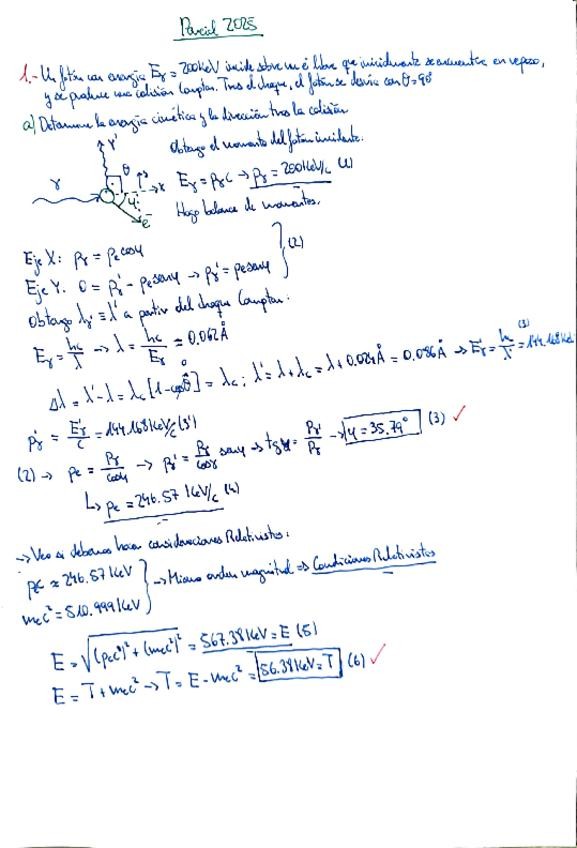 Parcial 2025
1.- Un fotón con energía Eγ = 200 KeV incide sobre un e⁻ libre que inicialmente se encuentra en reposo,
y se produce una colisión Compton. Tras el choque, el fotón se desvía con θ=90°
a) Determine la energía cinética y la dirección tras la colisión
Obtengo el momento del fotón incidente.
γ γ' θ x φ e⁻
Eγ = pγc → pγ = 200 KeV/c (1)
Hago balance de momentos.
Eje X: pγ = pe cosφ
Eje Y: 0 = pγ' - pe senφ → pγ' = pe senφ } (2)
Obtengo λγ' ≡ λ' a partir del choque Compton:
Eγ = hc/λ → λ = hc/Eγ = 0.062 Å
Δλ = λ' - λ = λc [1 - cosθ] = λc ; λ' = λ + λc = λ + 0.024 Å = 0.086 Å → Eγ' = hc/λ' = 144.168 KeV (3)
pγ' = Eγ'/c = 144.168 KeV/c (3')
(2) → pe = pγ/cosφ → pγ' = pγ/cosφ senφ → tgφ = pγ'/pγ → φ = 35.79° (3) ✓
↳ pe = 246.57 KeV/c (4)
→ Veo si debemos hacer consideraciones Relativistas:
pec = 246.57 KeV
mec² = 510.999 KeV } → Mismo orden magnitud ⇒ Condiciones Relativistas
E = √((pec)² + (mec²)²) = 567.38 KeV = E (5)
E = T + mec² → T = E - mec² = 56.38 KeV = T (6) ✓